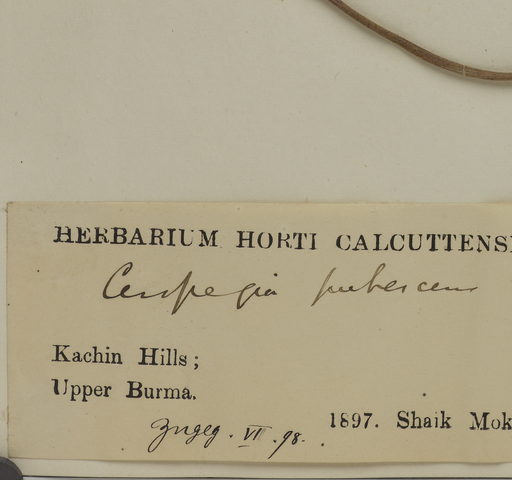 HERBARIUM HORTI CALCUTTENSI
Ceropegia pubescens
Kachin Hills;
Upper Burma.
1897. Shaik Mok
Zugeg. VII. 98.